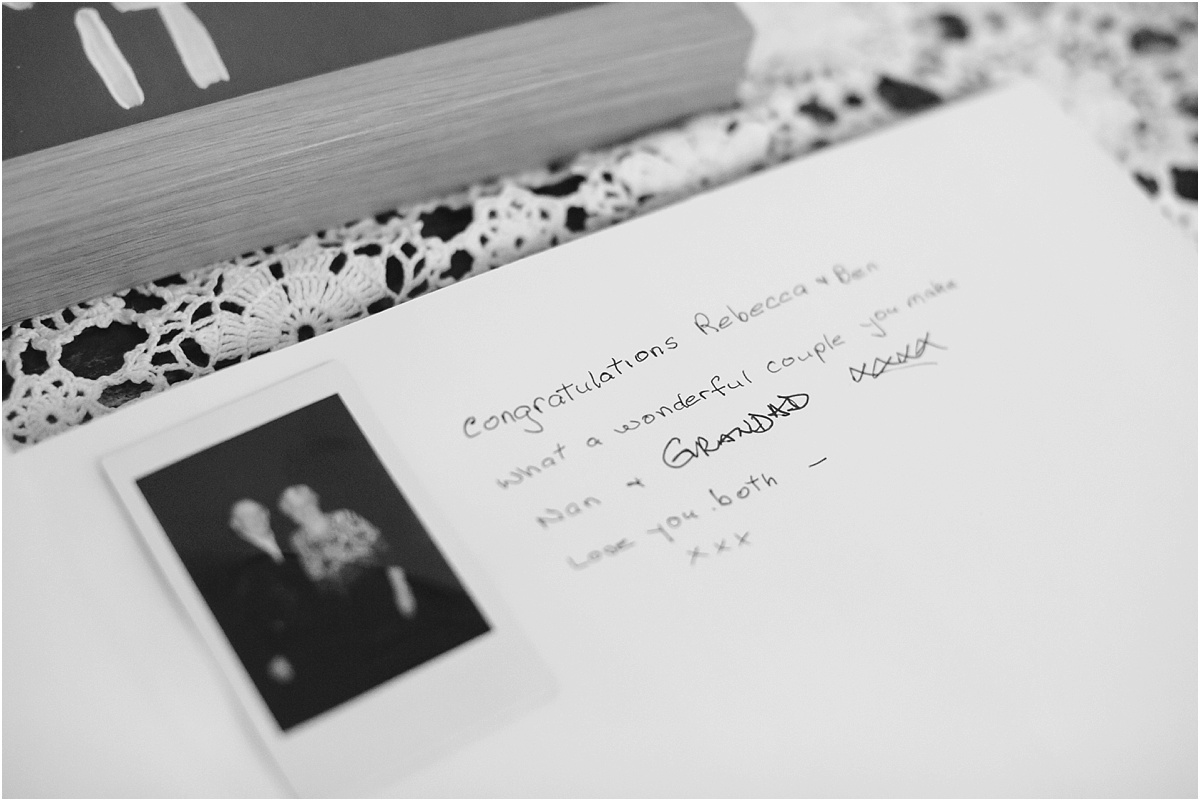 Congratulations Rebecca & Ben
what a wonderful couple you make
Nan & GRANDAD xxxx
Love you both –
x x x